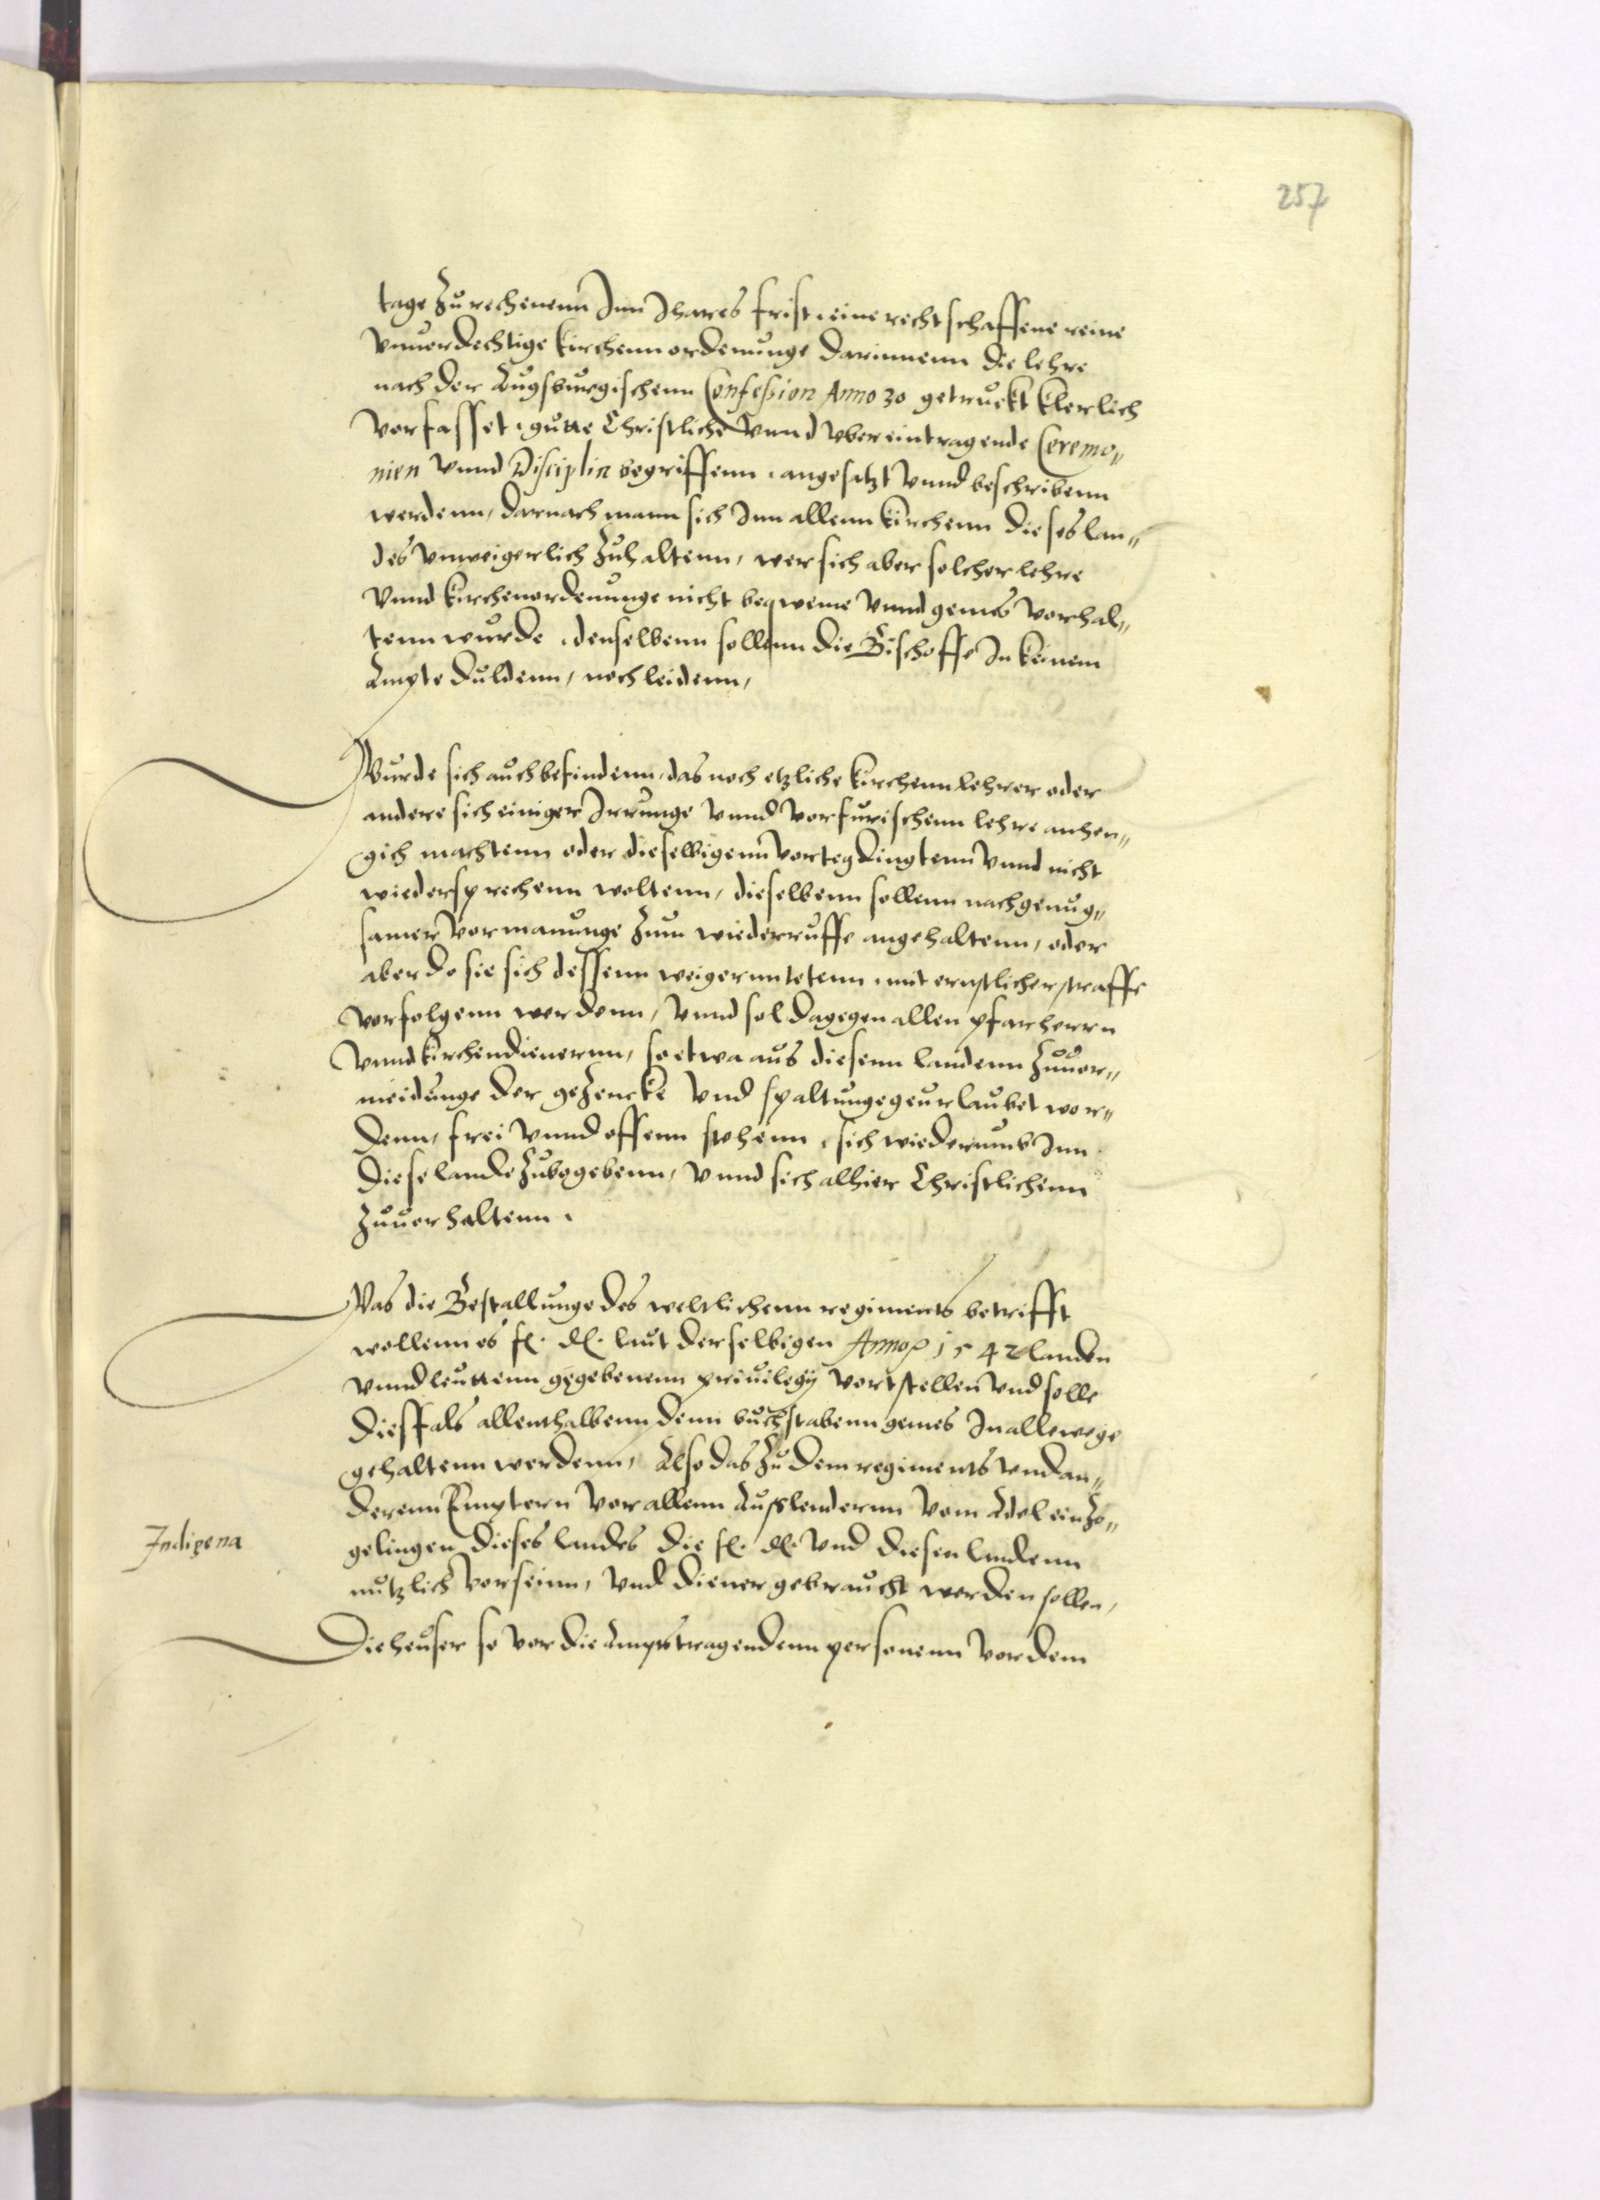 257
tage zurechenenn Inn Jhares frist, eine rechtschaffene reine
vnuerdechtige kirchennordenunge darinnenn die lehre
nach der Augsburgischenn Confession Anno 30 getruckt klerlich
vorfasset, gutte Christliche vnnd vbereintragende Ceremo„
nien vnnd Disciplin begriffenn, angesatzt vnnd beschribenn
werdenn, darnach mann sich Inn allenn kirchenn dieses lan„
des vnweigerlich zuhaltenn, wer sich aber solcher lehre
vnnd kirchenordenunge nicht beqweme vnnd gemes vorhal„
tenn wurde, denselbenn sollenn die Bischoffe In keinem
Ampte duldenn, noch leidenn,
Wurde sich auch befindenn, das noch etzliche kirchennlehrer oder
andere sich einiger Irrunge vnnd vorfurischenn lehre anhen„
gich machtenn oder dieselbigenn vortegdingtenn vnnd nicht
wiedersprechenn woltenn, dieselbenn sollenn nach genug„
samer vormanunge zum wiederruffe angehaltenn, oder
aber do sie sich dessenn weigernn tetenn, mit ernstlicher straffe
vorfolgenn werdenn, vnnd sol dagegen allen pfarherrn
vnnd kirchendienernn, so etwa aus diesenn landenn zuuor„
meidunge der gezencke vnd spaltunge geurlaubet wor„
denn, frei vnnd offenn stehenn, sich wiederumb Inn
diese lande zubegebenn, vnnd sich alhier Christlichenn
zuuerhaltenn.
Was die Bestallunge des weltlichenn regiments betrifft
wollenn es f. d. laut derselbigen Anno 1542 landen
vnnd leuttenn gegebenenn priuilegij vortstellen vnd solle
diesfals allenthalbenn denn buchstabenn gemes In allewege
gehaltenn werdenn, Also das zu dem regiments vnd an„
derenn Emptern vor allenn Auslendernn vom Adel einzo„
gelingen dieses landes die f. d. vnd diesen landenn
nutzlich vorseinn, vnd diener gebraucht werden sollen,
Indigena
Die heuser so vor die ampttragendenn personenn vor dem